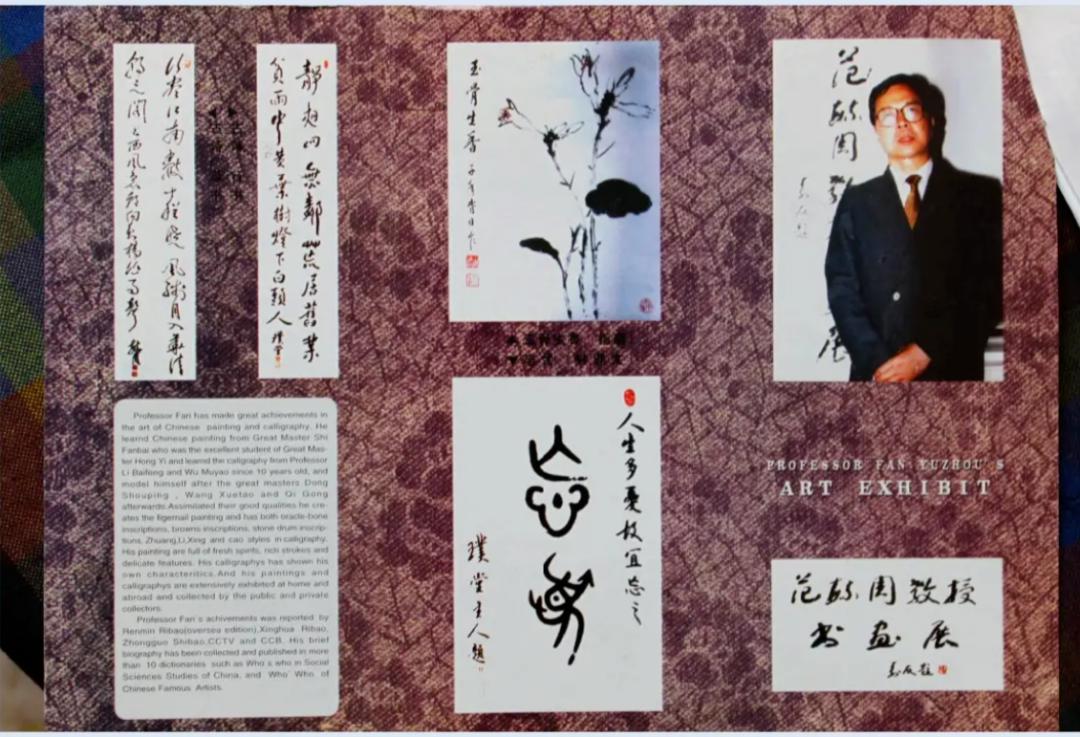 行盡江南數十程曉風殘月入華清
朝元閣上西風急都向長楊作雨聲
静夜四無鄰荒居舊業
貧雨中黄葉樹燈下白頭人
玉骨生香
范毓周
人生多憂故宜忘之
璞堂主人題
PROFESSOR FAN YUZHOU'S
ART EXHIBIT
范毓周教授
书画展
Professor Fan has made great achievements in
the art of Chinese painting and calligraphy. He
learnd Chinese painting from Great Master Shi
Fanbai who was the excellent student of Great Mas-
ter Hong Yi and learnd the caligraphy from Professor
Li Baifeng and Wu Muyao since 10 years old, and
model himself after the great masters Dong
Shouping , Wang Xuetao and Qi Gong
afterwards.Assimilated their good qualities he cre-
ates the figernail painting and has both oracle-bone
inscriptions, browns inscriptions, stone drum inscrip-
tions, Zhuang,Li,Xing and cao styles in calligraphy.
His painting are full of fresh spirits, rich strokes and
delicate features. His calligraphys has shown his
own characteritics.And his paintings and
calligraphys are extensively exhibited at home and
abroad and collected by the public and private
collectors.
Professor Fan's achivements was reported by
Renmin Ribao(oversea edition),Xinghua Ribao,
Zhongguo Shibao,CCTV and CCB. His brief
biography has been collected and published in more
than 10 dictionaries such as Who's who in Social
Sciences Studies of China, and Who' Who of
Chinese Famous Artists.